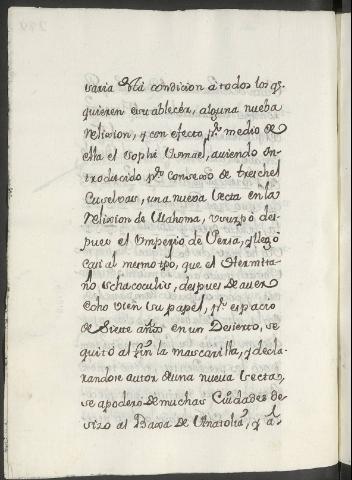 varia esta condicion à todos los qe.
quieren establecér, alguna nueba
Relixion, y con efecto, pr. medio de
ella el Sophi Ysmael, aviendo in-
troducido pr. consexo de treschel
Cuselvas, una nueva secta en la
Relixion de Mahoma, vsurpó des-
pues el Ymperio de Persa, y llegó
casi al mermo tpo, que el Hermita-
ño schacoculis, despues de aver
echo vien su papèl, pr. espacio
de Siete años en un Decierto, se
quitò al fin la mascarilla, y decla-
randose autor de una nueva secta,
se apoderó de muchas Ciudades de-
sizo al Baxa de Anatolia, y a l